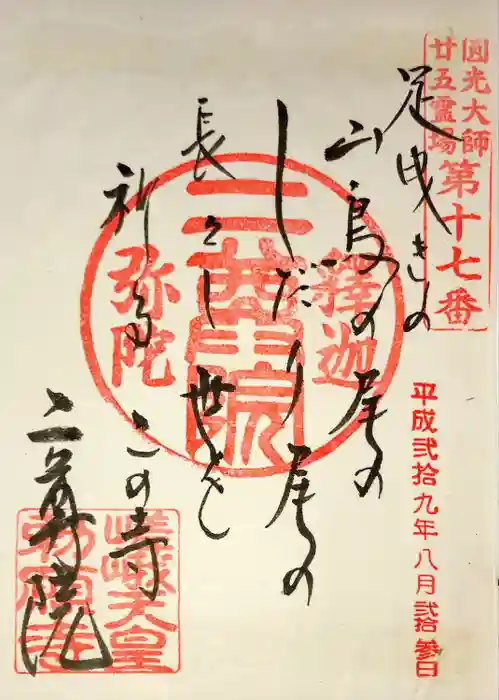 圓光大師
廿五霊場
第十七番
平成弐拾九年八月弐拾参日
足曳きの
山鳥の尾の
しだり尾の
長々し世を
祈る この寺
二尊院
釋迦
二尊院
弥陀
嵯峨天皇
勅願寺